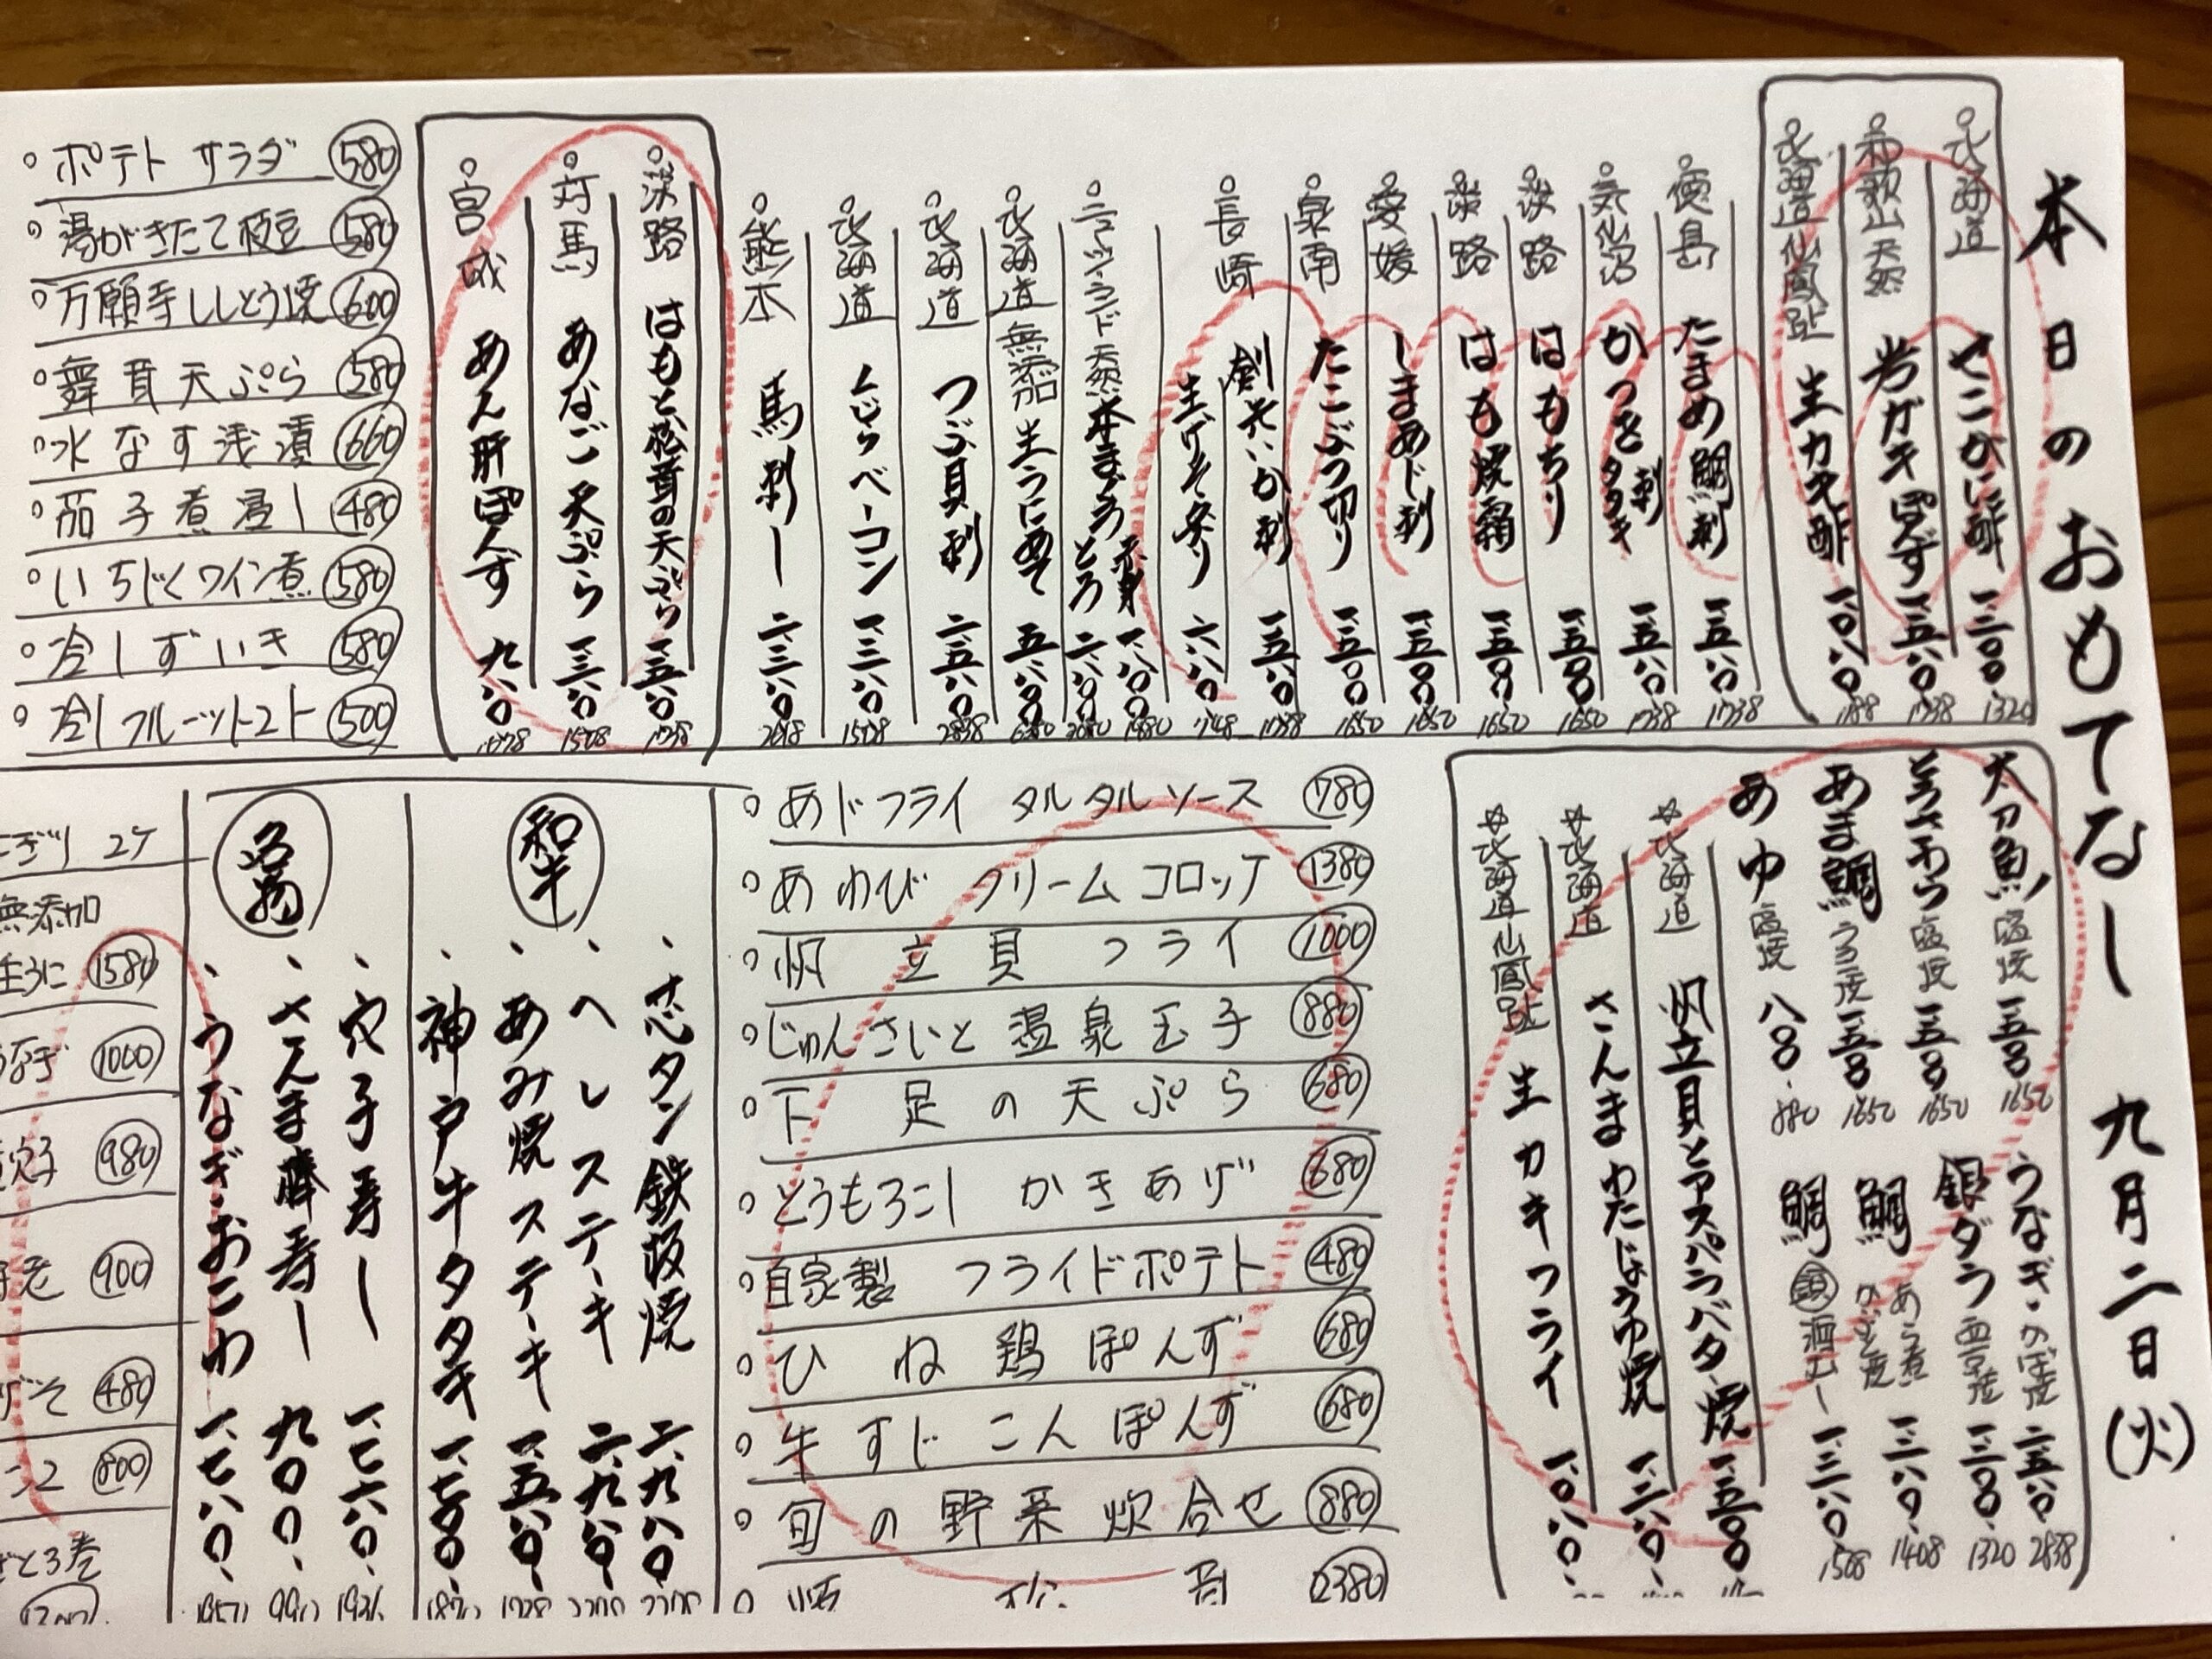 本日のおもてなし 九月二日(火)
北海道 せこがに酢 一、二〇〇 1320
和歌山天然 岩ガキぽんず 一、五八〇 1738
北海道仙鳳趾 生カキ酢 一、〇八〇 1188
徳島 たまめ鯛刺 一、五八〇 1738
気仙沼 かつを刺 タタキ 一、五八〇 1738
淡路 はもちり 一、五〇〇 1650
淡路 はも焼霜 一、五〇〇 1650
愛媛 しまあじ刺 一、五〇〇 1650
泉南 たこぶつ切り 一、五〇〇 1650
長崎 剣先いか刺 一、五八〇 1738
生げそ造り 六八〇 748
天然本まぐろ 赤身 一、八〇〇 1980
とろ
北海道 無添加 生うにあて 五、八〇〇 6380
北海道 つぶ貝刺 二、五八〇 2838
北海道 くじらベーコン 一、三八〇 1518
熊本 馬刺し 二、三八〇 2618
淡路 はもと松茸の天ぷら 一、五八〇 1738
対馬 あなご天ぷら 一、三八〇 1518
宮城 あん肝ぽんず 九八〇 1078
ポテトサラダ 580
湯がきたて枝豆 580
万願寺ししとう焼 600
舞茸天ぷら 580
水なす浅漬 660
茄子煮浸し 480
いちじくワイン煮 580
冷しずいき 580
冷しフルーツトマト 500
太刀魚 塩焼 一、五〇〇 1650
とろさわら 塩焼 一、五〇〇 1650
あま鯛 うろこ焼 一、五〇〇 1650
あゆ 塩焼 八〇〇 880
うなぎ・のぼ焼 二、五八〇 2838
銀ダラ 西京焼 一、二〇〇 1320
鯛 あら煮 かぶと焼 一、二八〇 1408
鯛 頭 酒むし 一、三八〇 1518
北海道 帆立貝とアスパラバター焼 一、五〇〇
北海道 さんまわたじょうゆ焼 一、二八〇
北海道仙鳳趾 生カキフライ 一、〇八〇
あじフライ タルタルソース 780
あわびクリームコロッケ 1380
帆立貝フライ 1000
じゅんさいと温泉玉子 880
下足の天ぷら 680
とうもろこしかきあげ 680
自家製フライドポテト 480
ひね鶏ぽんず 680
牛すじこんぽんず 680
旬の野菜炊合せ 880
2380
和牛
芯タン鉄板焼 二、九八〇
ヘレステーキ 二、九〇〇
あみ焼ステーキ 一、五八〇
神戸牛タタキ 一、七〇〇 1870
名物
穴子寿し 一、七六〇 1936
さんま棒寿し 九〇〇 990
うなぎ・おこわ 一、七八〇
にぎり 2ケ
無添加
生うに 1580
うなぎ 1000
980
900
げそ 480
800
3巻